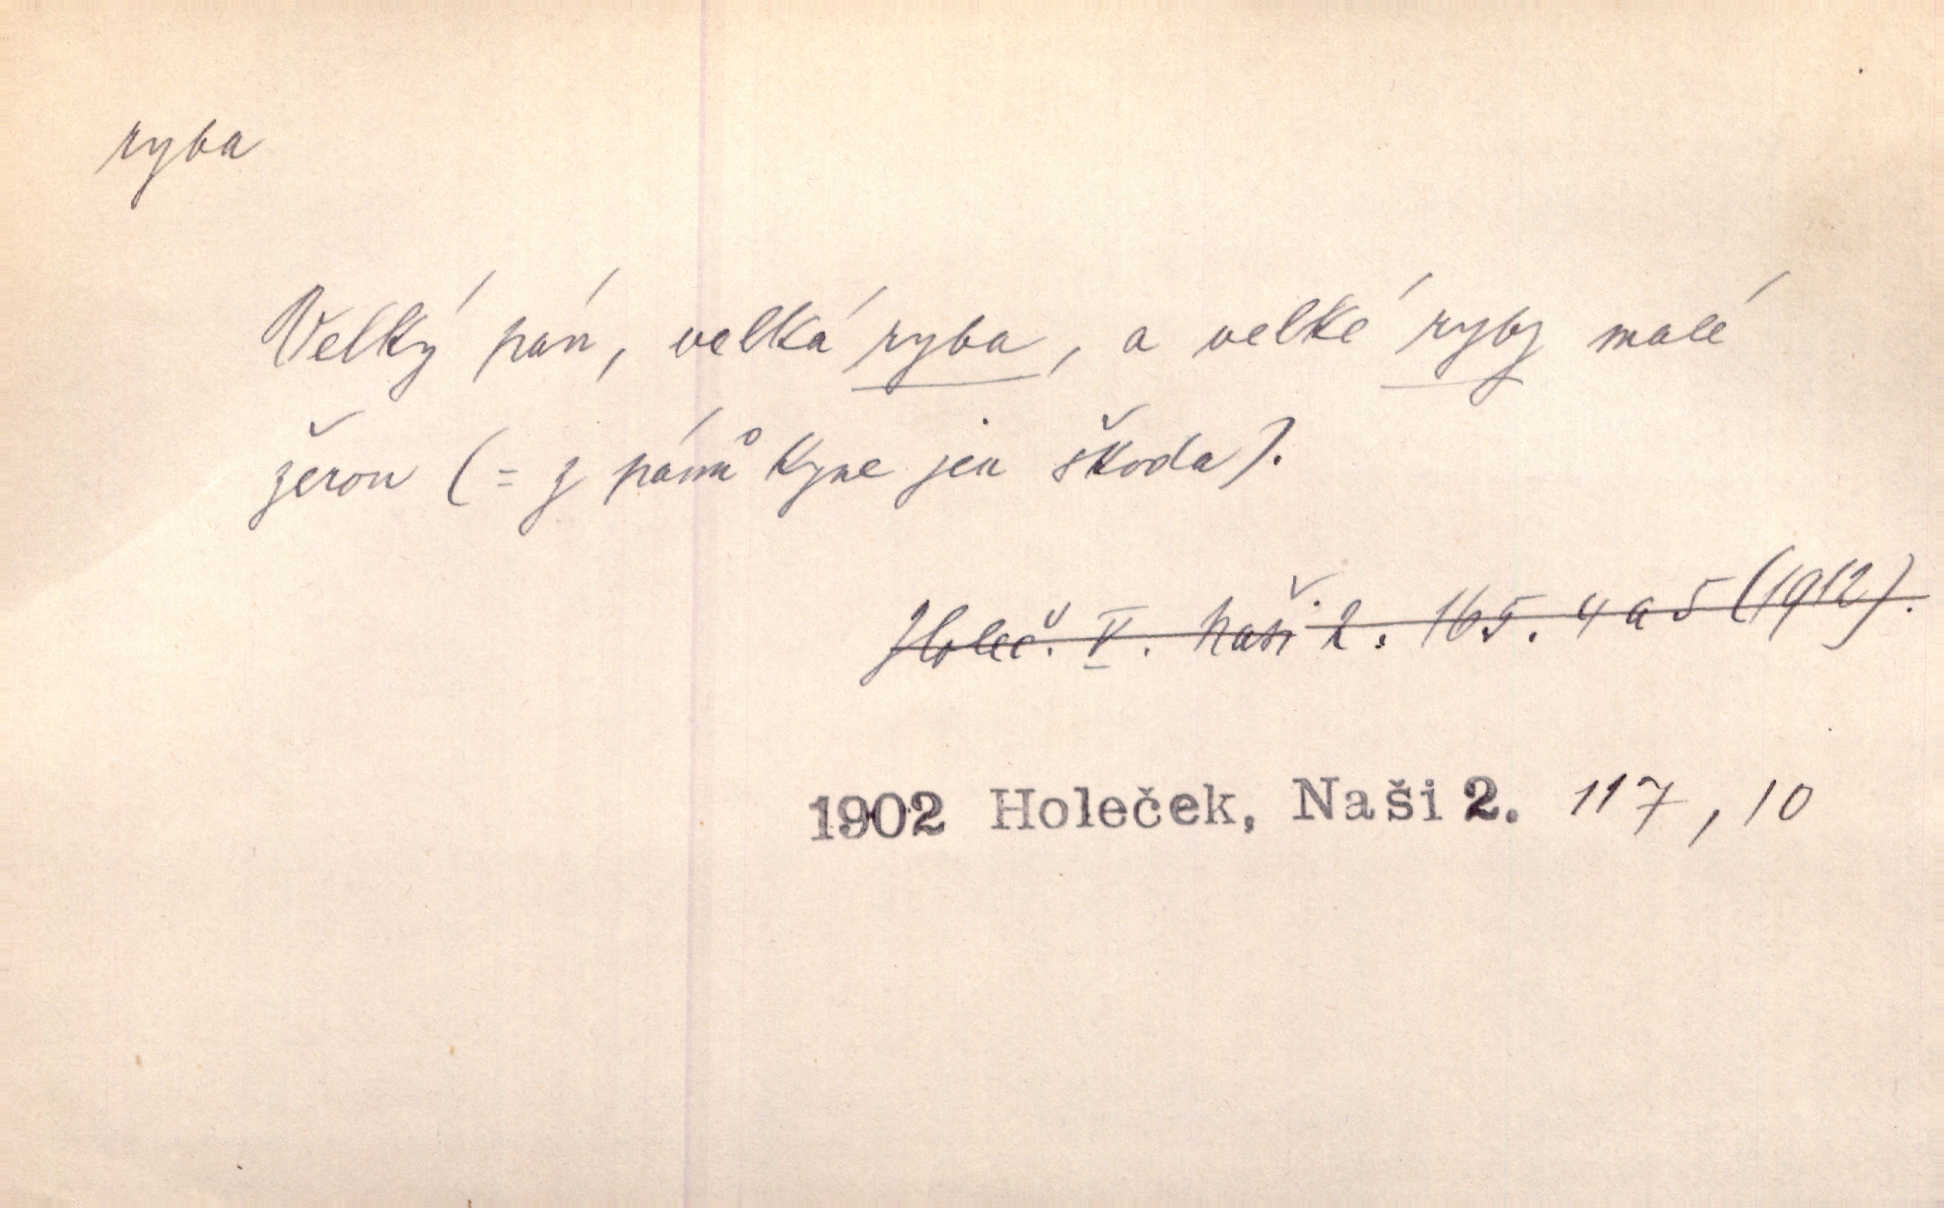 ryba
Velký pán, velká ryba, a velké ryby malé
žerou (= z pánů kyne jen škoda).
Holeč. V. Naši 2. 165. 4 a 5 (1912).
1902 Holeček, Naši 2. 117, 10